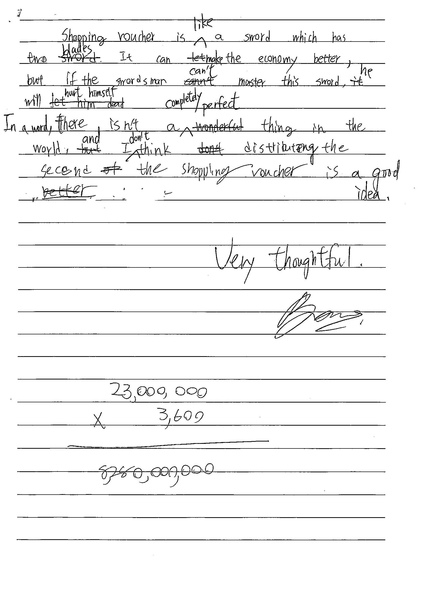 Shopping voucher is like a sword which has
two sword blades It can let make the economy better,
but if the swordsman can't can't master this sword, it he
will let hurt him himself dead
In a word, there isn't a completely wonderful perfect thing in the
world, but and I don't think don't distributing the
second of the shopping voucher is a good
better idea.
Very thoughtful.
23,000,000
X 3,600
8280,000,000